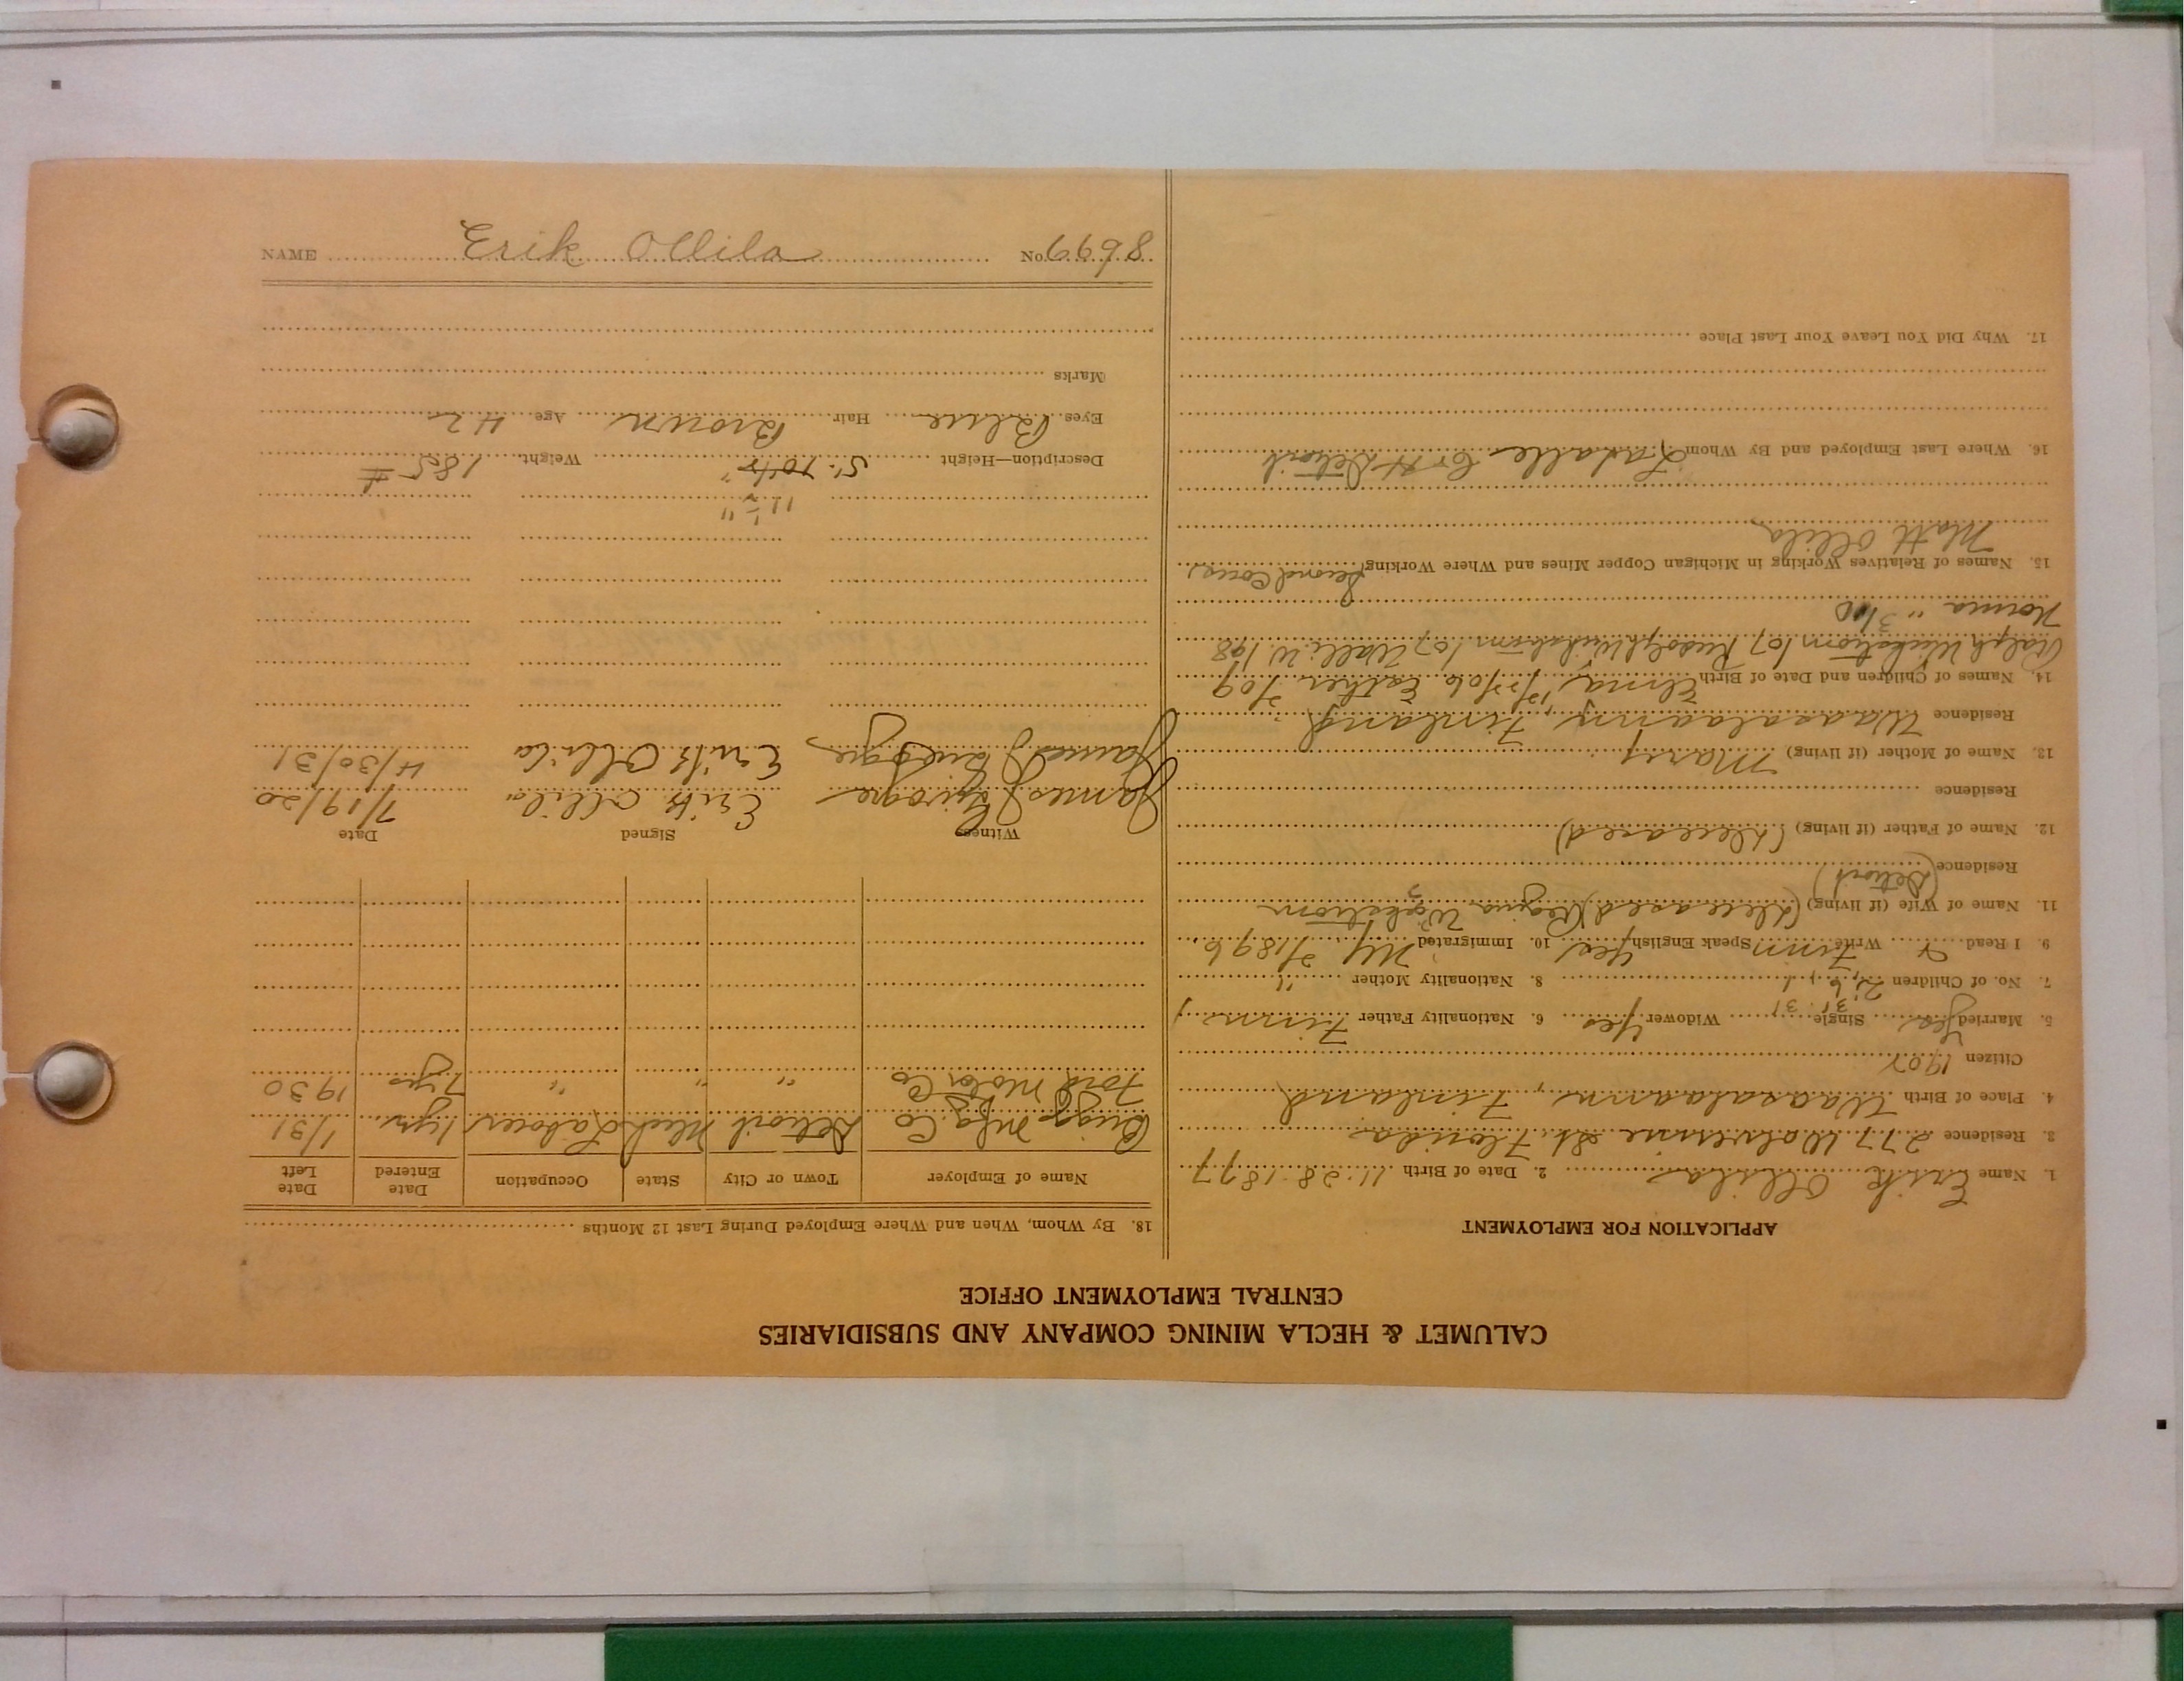 CALUMET & HECLA MINING COMPANY AND SUBSIDIARIES
CENTRAL EMPLOYMENT OFFICE
APPLICATION FOR EMPLOYMENT
1. Name Erik Ollila 2. Date of Birth 11-28-1877
3. Residence 277 Wolverine St. Florida
4. Place of Birth Waasalaani, Finland
Citizen 1902
5. Married Yes Single Widower Yes 6. Nationality Father Finn
7. No. of Children 8. Nationality Mother "
9. I Read & Write Finn Speak English Yes 10. Immigrated NY 1896
11. Name of Wife (if living) (Deceased) (Regina Wickstrom
Residence (Detroit)
12. Name of Father (if living) (Deceased)
Residence
13. Name of Mother (if living) Mary
Residence Waasalaani, Finland
14. Names of Children and Date of Birth Elma, Esther 09
Ralph Wickstrom 107 Rudolph Wickstrom 107 W. 198
Norma " 3/10
15. Names of Relatives Working in Michigan Copper Mines and Where Working Second Cous
Matt Ollila
16. Where Last Employed and By Whom Detroit
17. Why Did You Leave Your Last Place
18. By Whom, When and Where Employed During Last 12 Months
Name of Employer Town or City State Occupation Date Entered Date Left
Briggs Mfg. Co Detroit Mich Laborer 1 yr. 1/31
Ford Motor Co " " " 7 yrs 1930
Witness Signed Date
James Erik Ollila 7/19/20
James Erik Ollila 4/30/31
11 1/2"
Description—Height 5'. 10 1/2" Weight 185 #
Eyes Blue Hair Brown Age 42
Marks
NAME Erik Ollila No. 6698